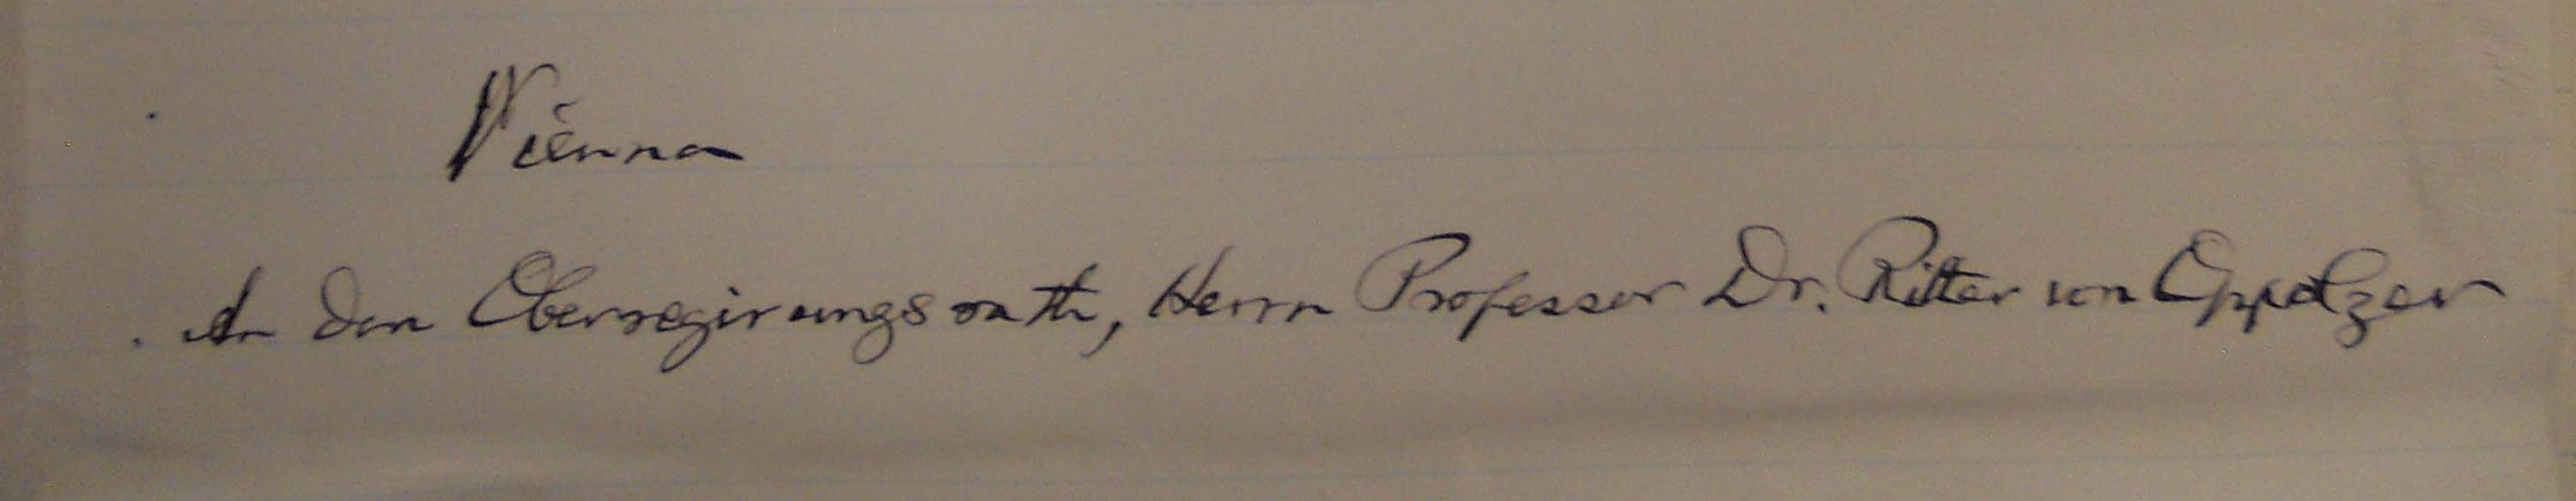 Vienna
An den Oberregirungsrath, Herrn Professor Dr. Ritter von Oppolzer